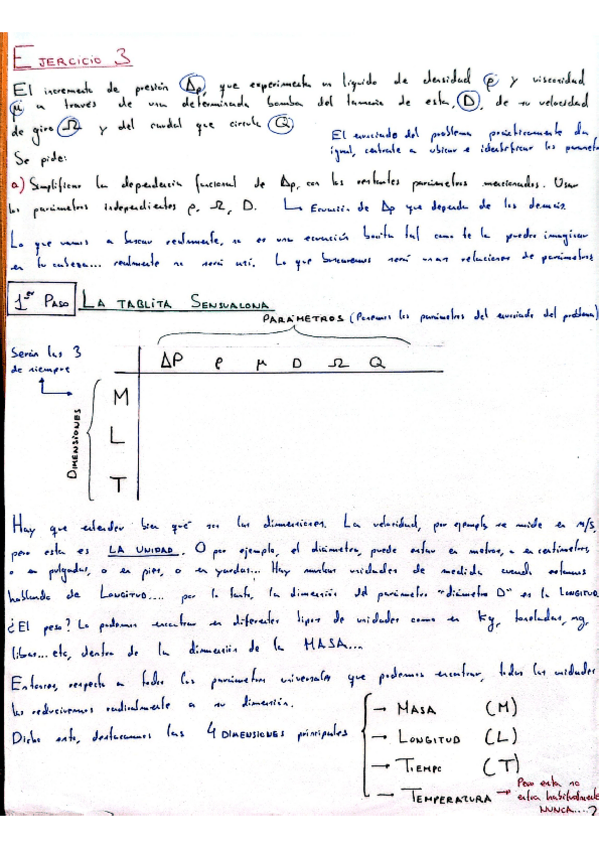 EJERCICIO 3
El incremento de presión Δp, que experimenta un líquido de densidad ρ y viscosidad
μ a través de una determinada bomba del tamaño de esta, D, de su velocidad
de giro Ω y del caudal que circula Q
El enunciado del problema prácticamente da
igual, céntrate a ubicar e identificar los parámetros
Se pide:
a) Simplificar la dependencia funcional de Δp, con los restantes parámetros mencionados. Usar
los parámetros independientes ρ, Ω, D. ↳ Ecuación de Δp que dependa de los demás.
Lo que vamos a buscar realmente, no es una ecuación bonita tal como te la puedes imaginar
en tu cabeza... realmente no será así. Lo que buscaremos será unas relaciones de parámetros
1er PASO LA TABLITA SENSUALONA
PARÁMETROS (Ponemos los parámetros del enunciado del problema)
Serán las 3
de siempre
ΔP ρ μ D Ω Q
DIMENSIONES
M
L
T
Hay que entender bien qué son las dimensiones. La velocidad, por ejemplo se mide en m/s,
pero esta es LA UNIDAD. O por ejemplo, el diámetro, puede estar en metros, o en centímetros
o en pulgadas, o en pies, o en yardas... Hay muchas unidades de medida cuando estamos
hablando de LONGITUD.... por lo tanto, la dimensión del parámetro "diámetro D" es la LONGITUD.
¿El peso? Lo podemos encontrar en diferentes tipos de unidades como en Kg, toneladas, mg,
libras... etc, dentro de la dimensión de la MASA....
Entonces, respecto a todos los parámetros universales que podemos encontrar, todas las unidades
las reduciremos radicalmente a su dimensión.
Dicho esto, destacamos las 4 DIMENSIONES principales
→ MASA (M)
→ LONGITUD (L)
→ TIEMPO (T)
→ TEMPERATURA → Pero esta no
entra habitualmente
NUNCA....?